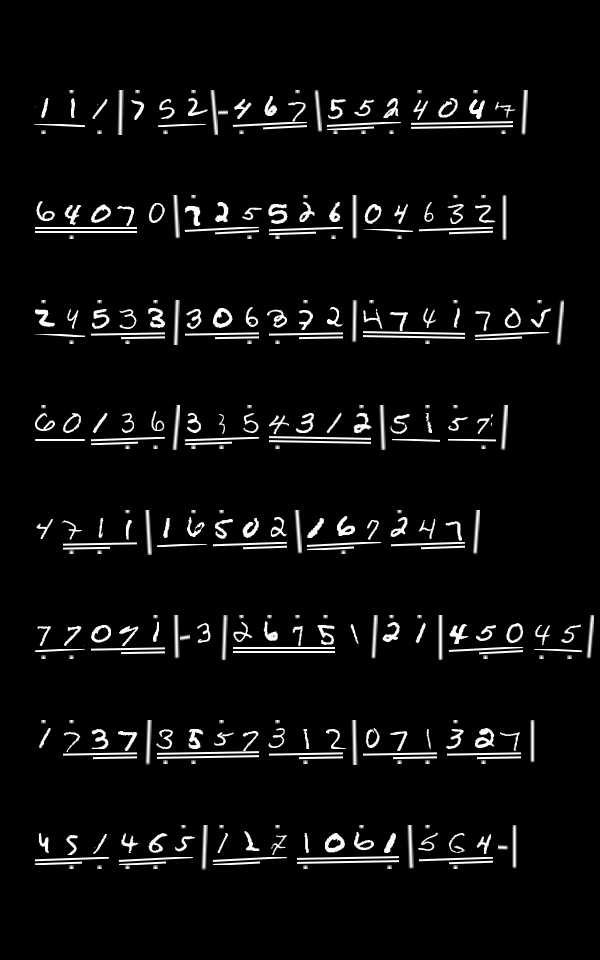 1 1 1 | 7 5 2 | - 4 6 7 | 5 5 2 4 0 4 7 |
6 4 0 7 0 | 7 2 5 5 2 6 | 0 4 6 3 2 |
2 4 5 3 3 | 3 0 6 3 7 2 | 4 7 4 1 7 0 5 |
6 0 1 3 6 | 3 3 5 4 3 1 2 | 5 1 5 7 |
4 7 1 1 | 1 6 5 0 2 | 1 6 7 2 4 7 |
7 7 0 7 1 | - 3 | 2 6 7 5 1 | 2 1 | 4 5 0 4 5 |
1 7 3 7 | 3 5 5 7 3 1 2 | 0 7 1 3 2 7 |
4 5 1 4 6 5 | 1 2 7 1 0 6 1 | 5 6 4 - |